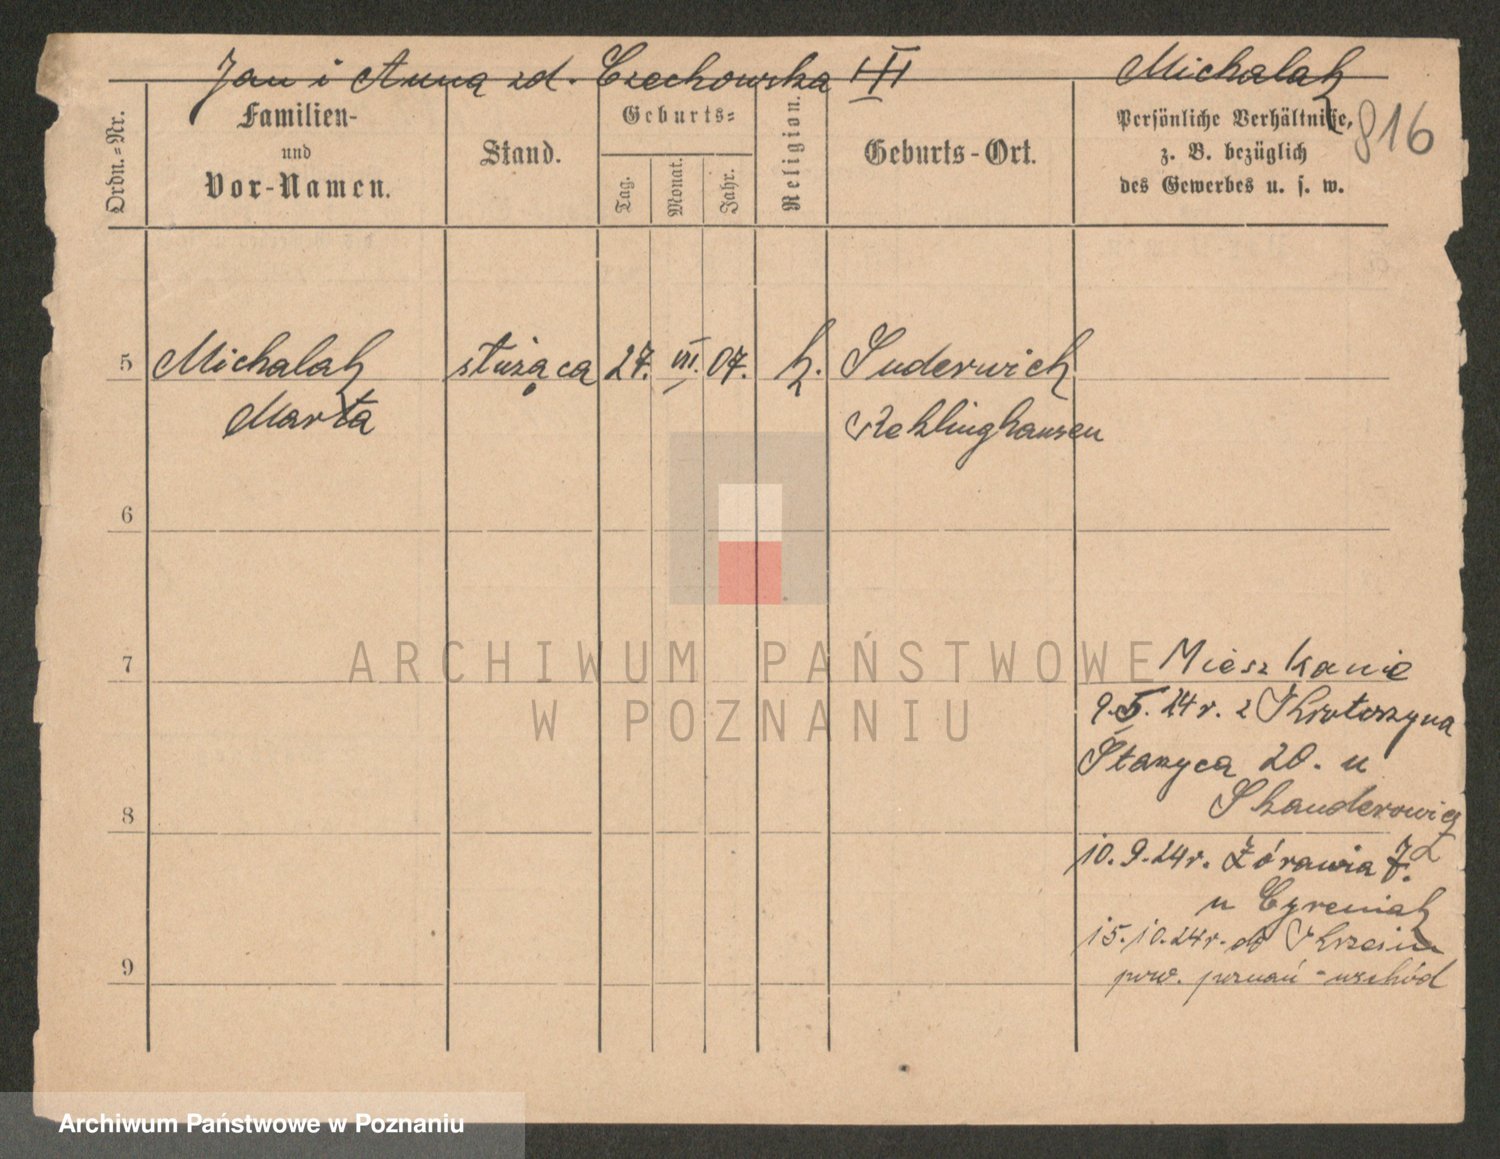 Jan i Anna zd. Czechowska III Michalak
816
Ordn.-Nr.
Familien-
und
Vor-Namen.
Stand.
Geburts-
Tag.
Monat.
Jahr.
Religion.
Geburts-Ort.
Persönliche Verhältnisse,
z. B. bezüglich
des Gewerbes u. s. w.
5 Michalak służąca 27. VII. 07. k. Suderwich
Marta Reklinghausen
6
7 Mieszkanie
9.5.24r. z Krotoszyna
Stazyca 20. u
8
10.9.24r. Żórawia 7.
u Cyreniak
15.10.24r. do Krzesin
9 pow. poznań-wschód
ARCHIWUM PAŃSTWOWE
W POZNANIU
Archiwum Państwowe w Poznaniu